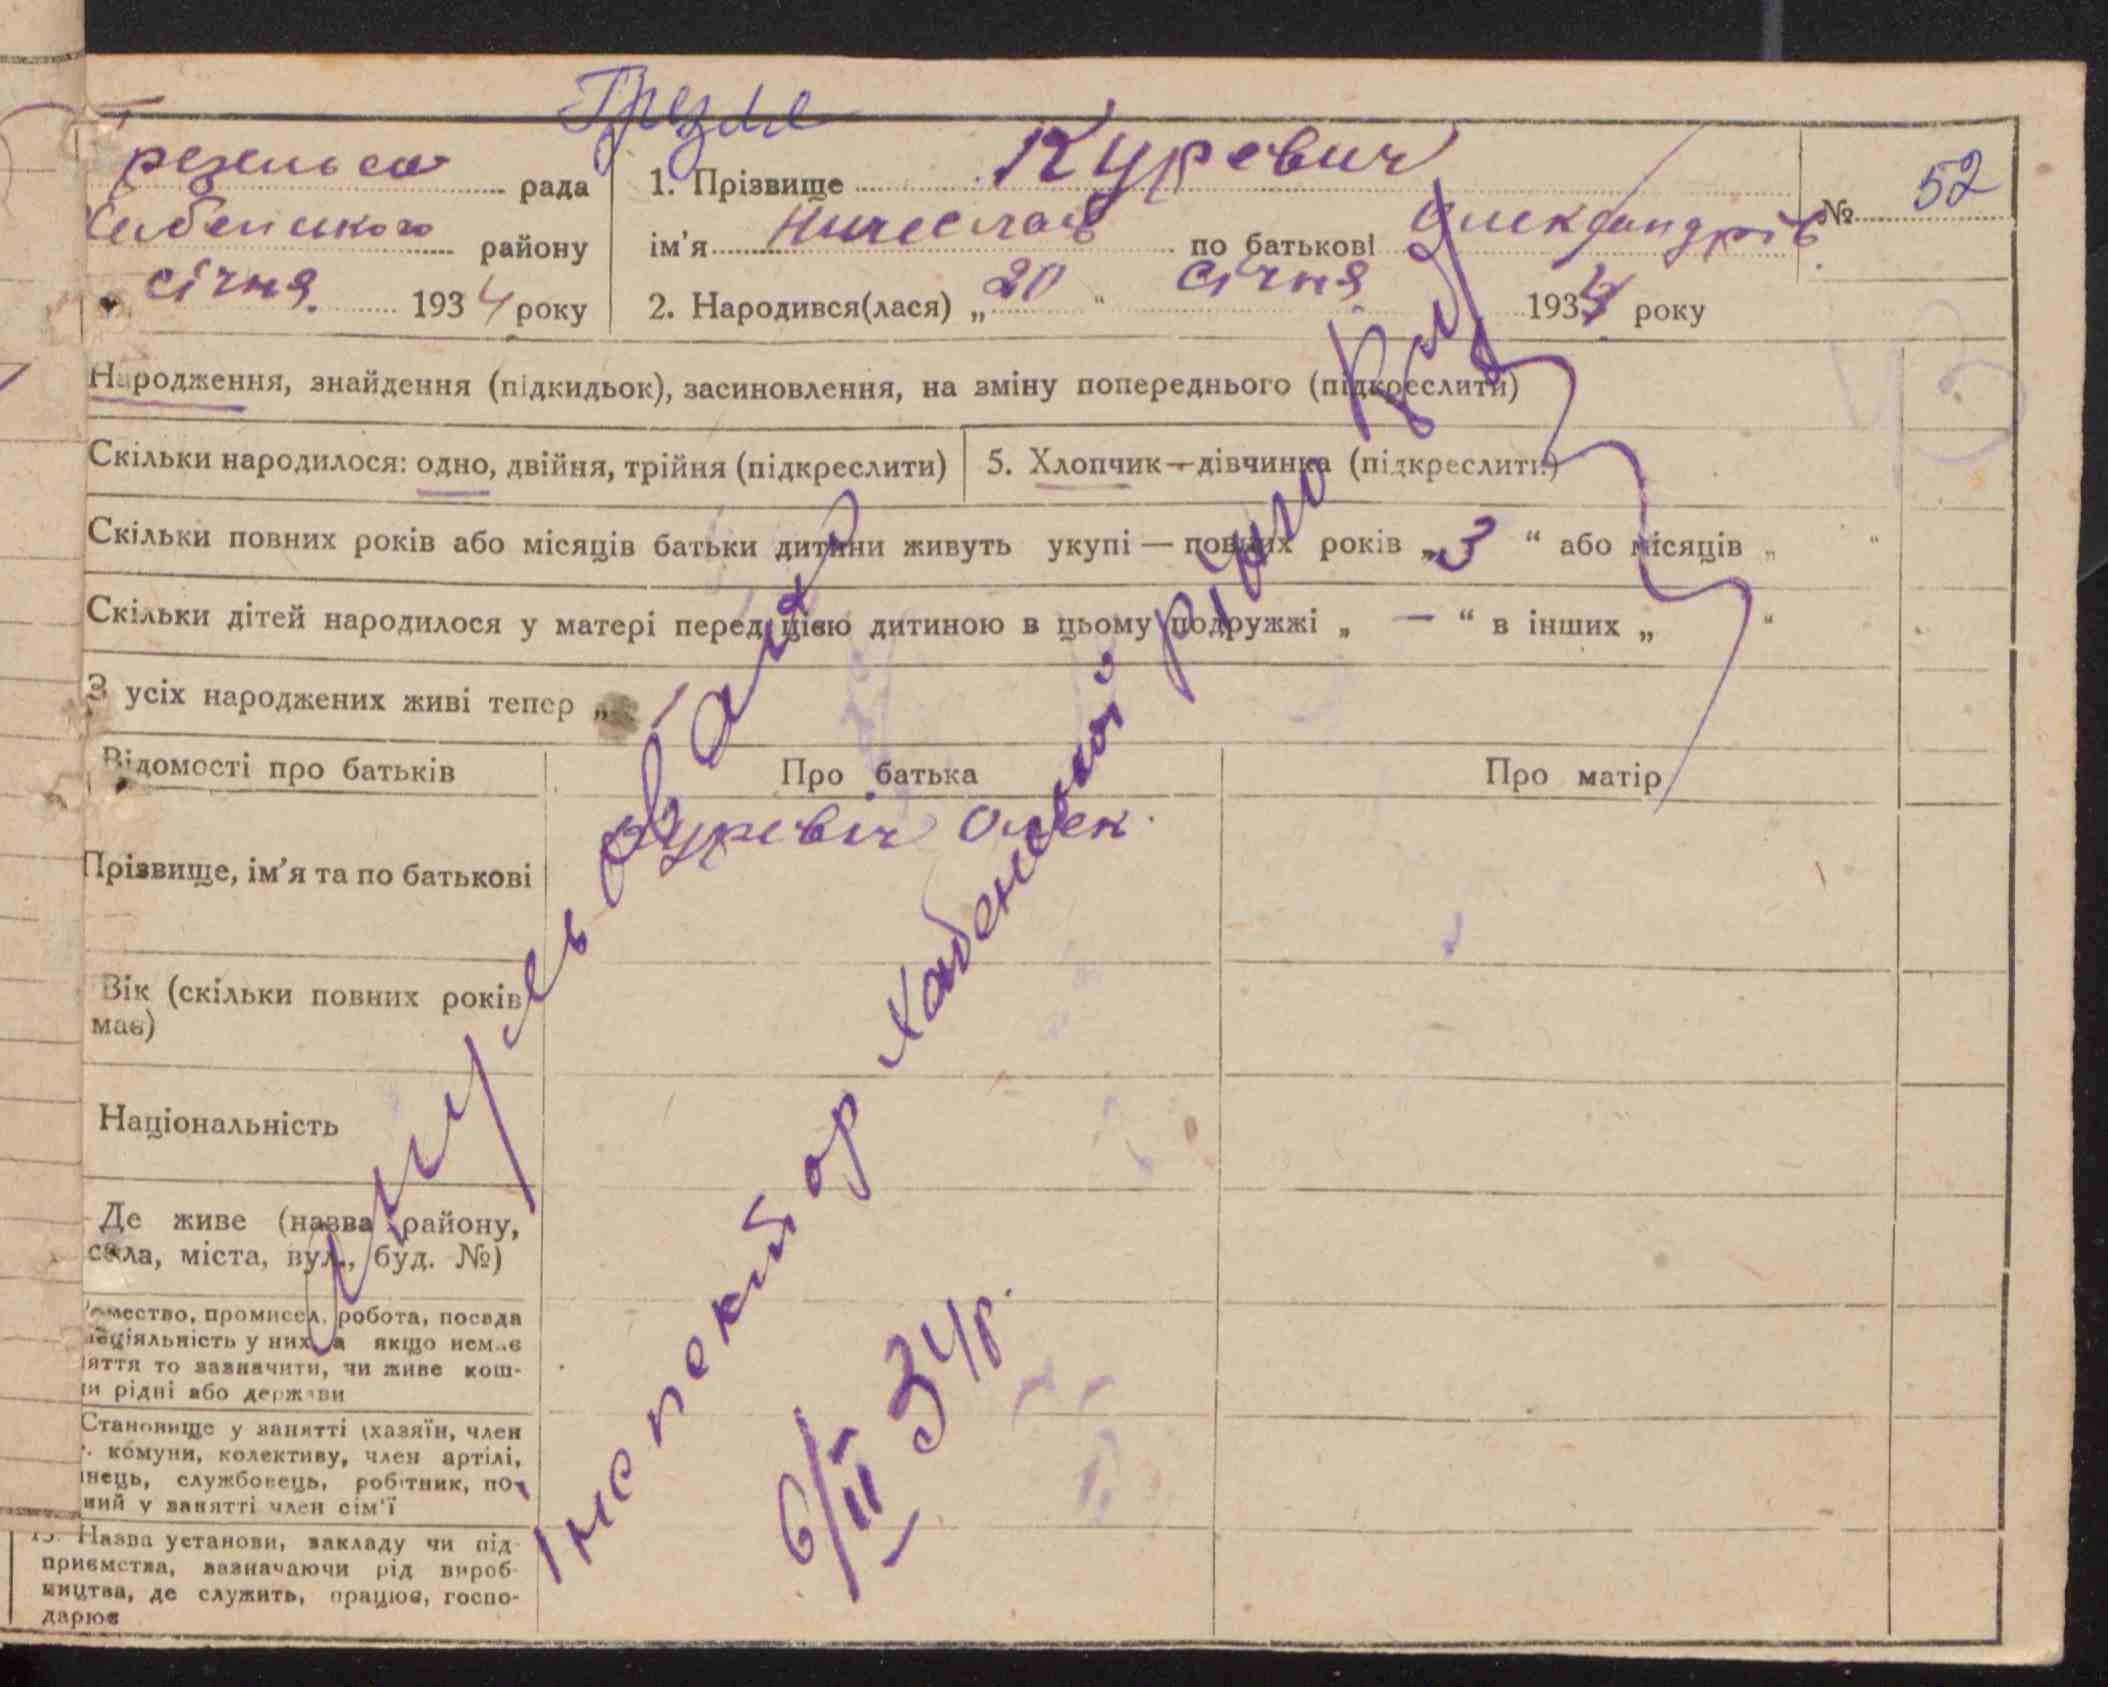 Грезля
резельса рада
1. Прізвище Куревич
№ 52
Хабенського району
ім'я Вичеслав по батькові Олександрів
січня 1934 року
2. Народився(лася) „20“ січня 1934 року
Народження, знайдення (підкидьок), засиновлення, на зміну попереднього (підкреслити)
Скільки народилося: одно, двійня, трійня (підкреслити)
5. Хлопчик—дівчинка (підкреслити)
Скільки повних років або місяців батьки дитини живуть укупі — повних років „3“ або місяців „ “
Скільки дітей народилося у матері перед цією дитиною в цьому подружжі „ — “ в інших „ “
З усіх народжених живі тепер „
Відомості про батьків
Про батька
Про матір
Прізвище, ім'я та по батькові
Куревіч Олек.
Вік (скільки повних років має)
Національність
Де живе (назва району,
села, міста, вул., буд. №)
промисел, робота, посада
у них, а якщо немає
то зазначити, чи живе кош-
рідні або держави
Становище у занятті (хазяїн, член
комуни, колективу, член артілі,
службовець, робітник, по-
у занятті член сім'ї
Назва установи, закладу чи під-
приємства, зазначаючи рід вироб-
ництва, де служить, працює, госпо-
дарює
Анульований
Інспектор Хабенської
6/II 34р.